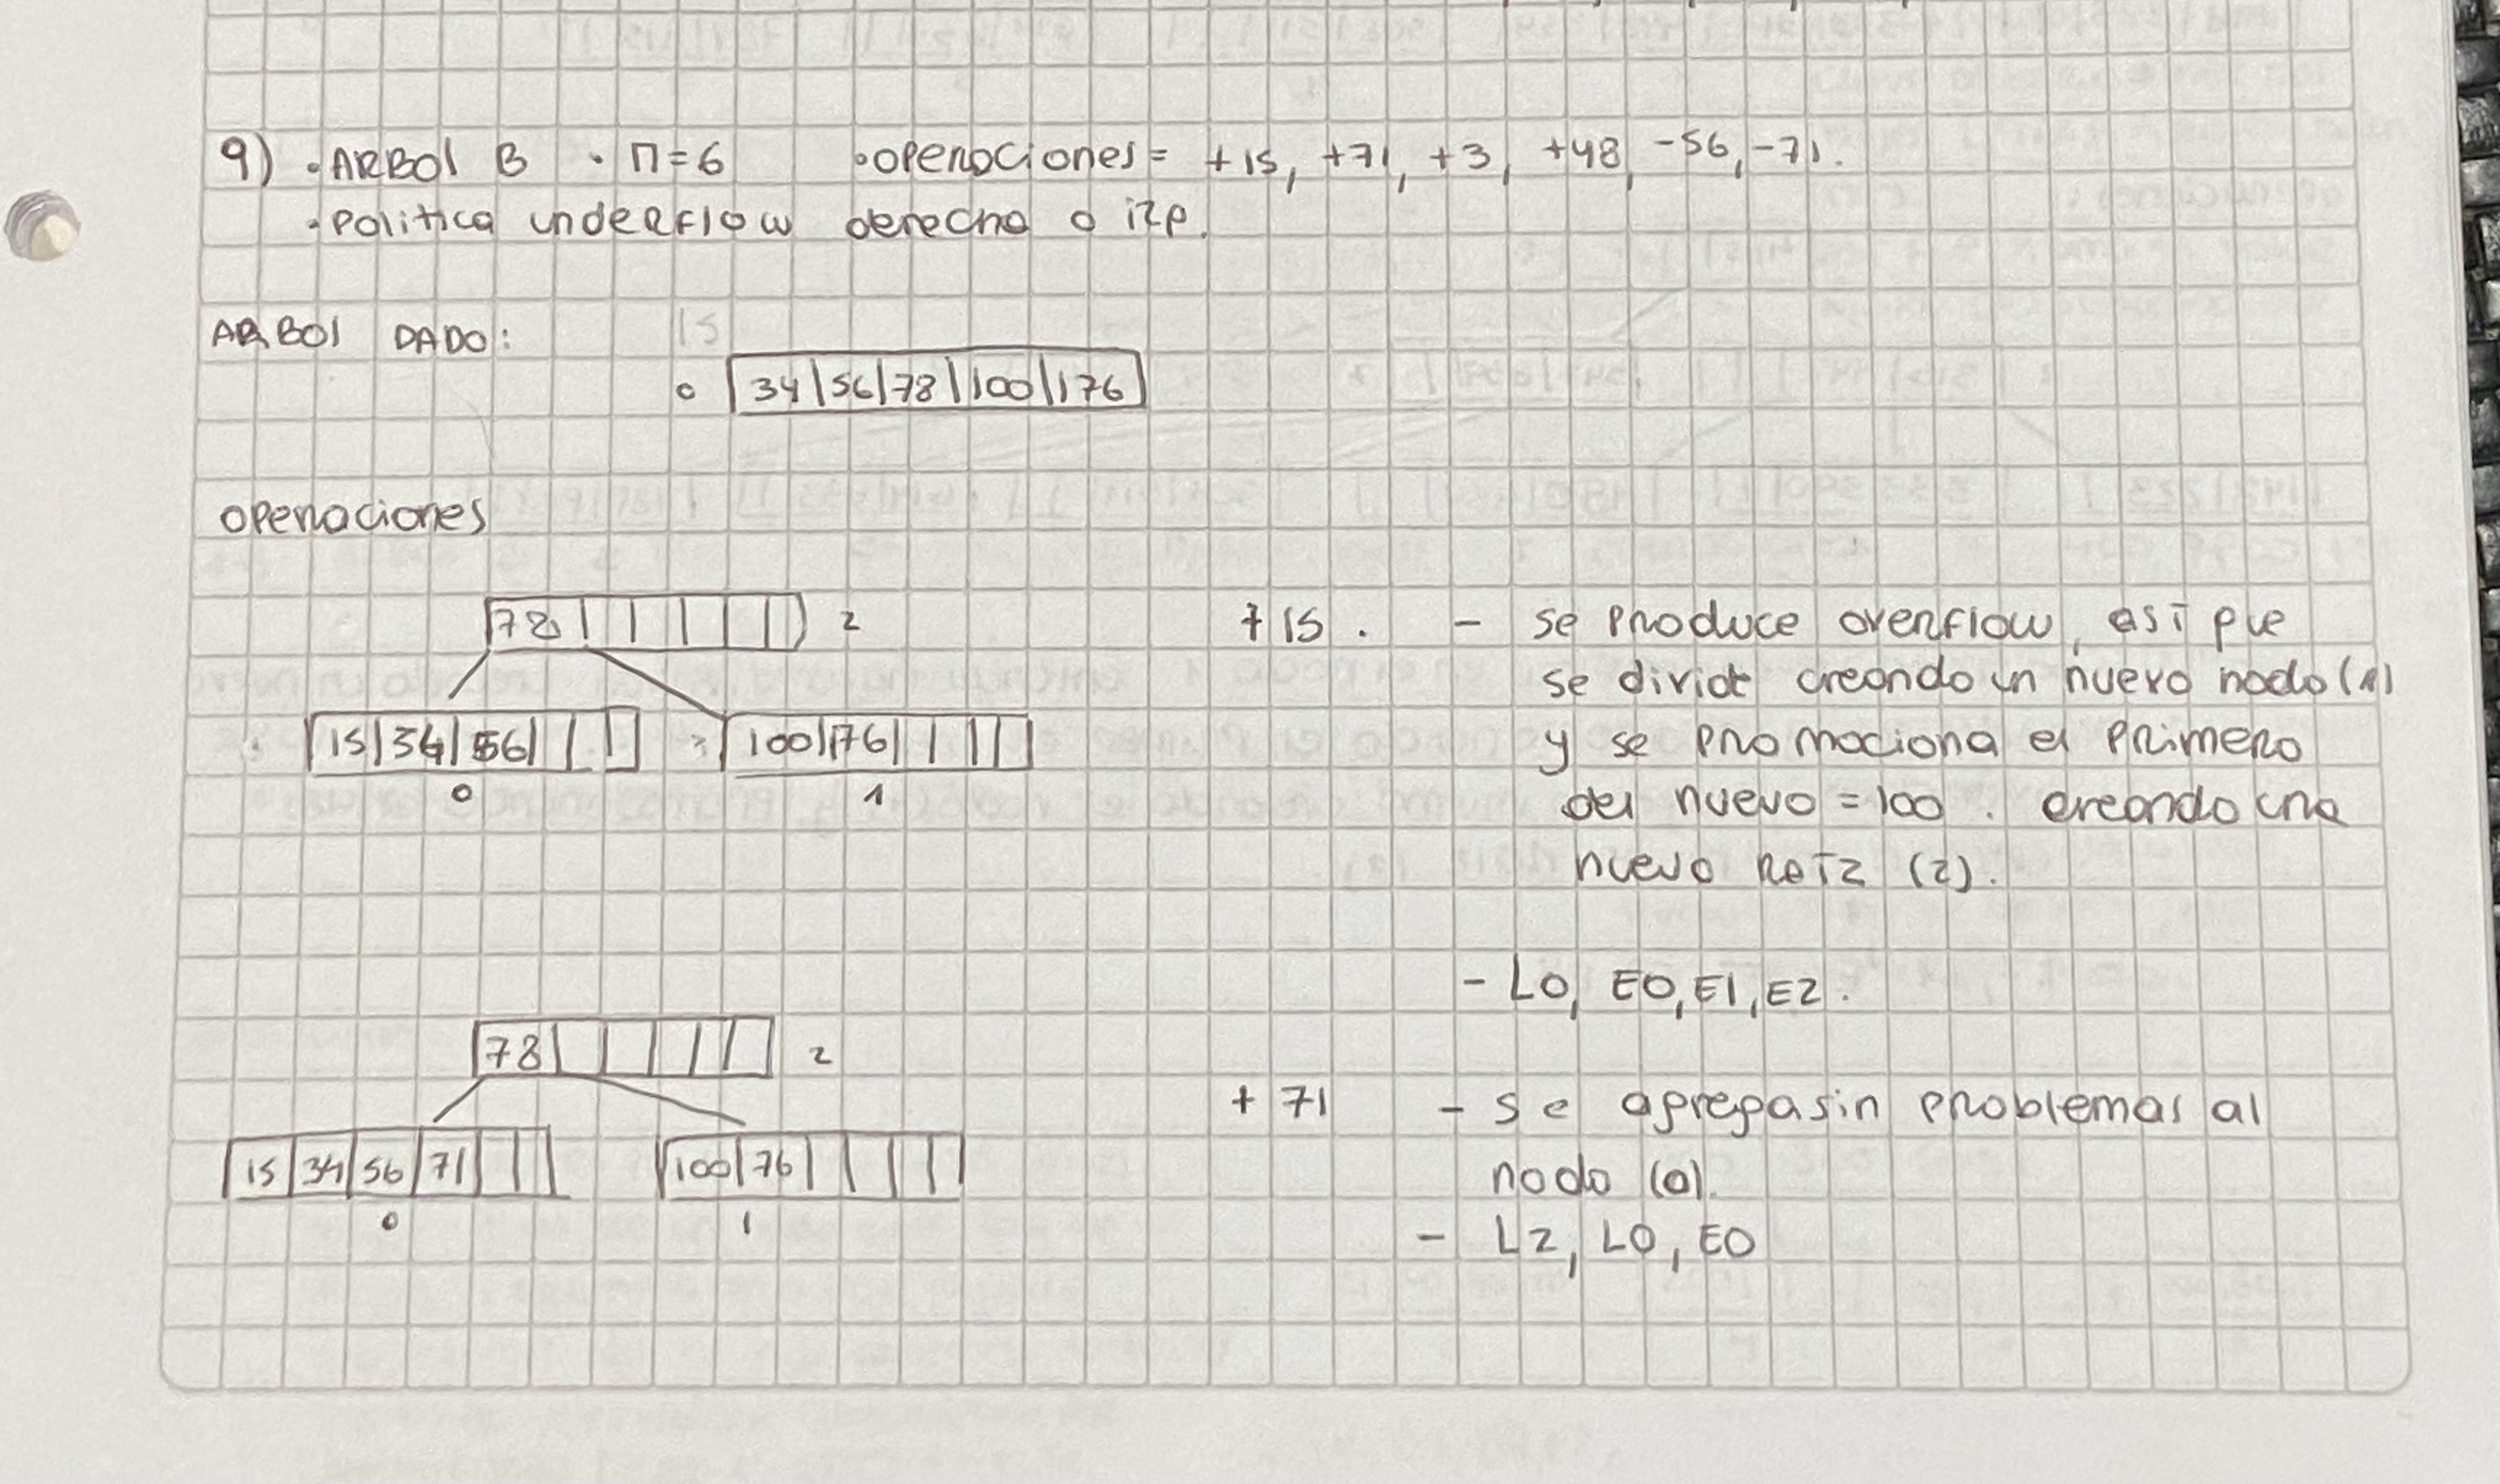 9) • ARBOl B • M=6 • operaciones = +15, +71, +3, +48, -56, -71.
• Politica underflow derecha o izq.
ARBOl DADO:
0 34 | 56 | 78 | 100 | 176
operaciones
78 2
15 | 34 | 56 100 | 176
0 1
+ 15 . - se produce overflow, así que
se divide creando un nuevo nodo (1)
y se promociona el primero
del nuevo = 100 . creando una
nuevo raiz (2).
- L0, E0, E1, E2 .
78 2
15 | 34 | 56 | 71 100 | 76
0 1
+ 71 - se agrega sin problemas al
nodo (0).
- L2, L0, E0